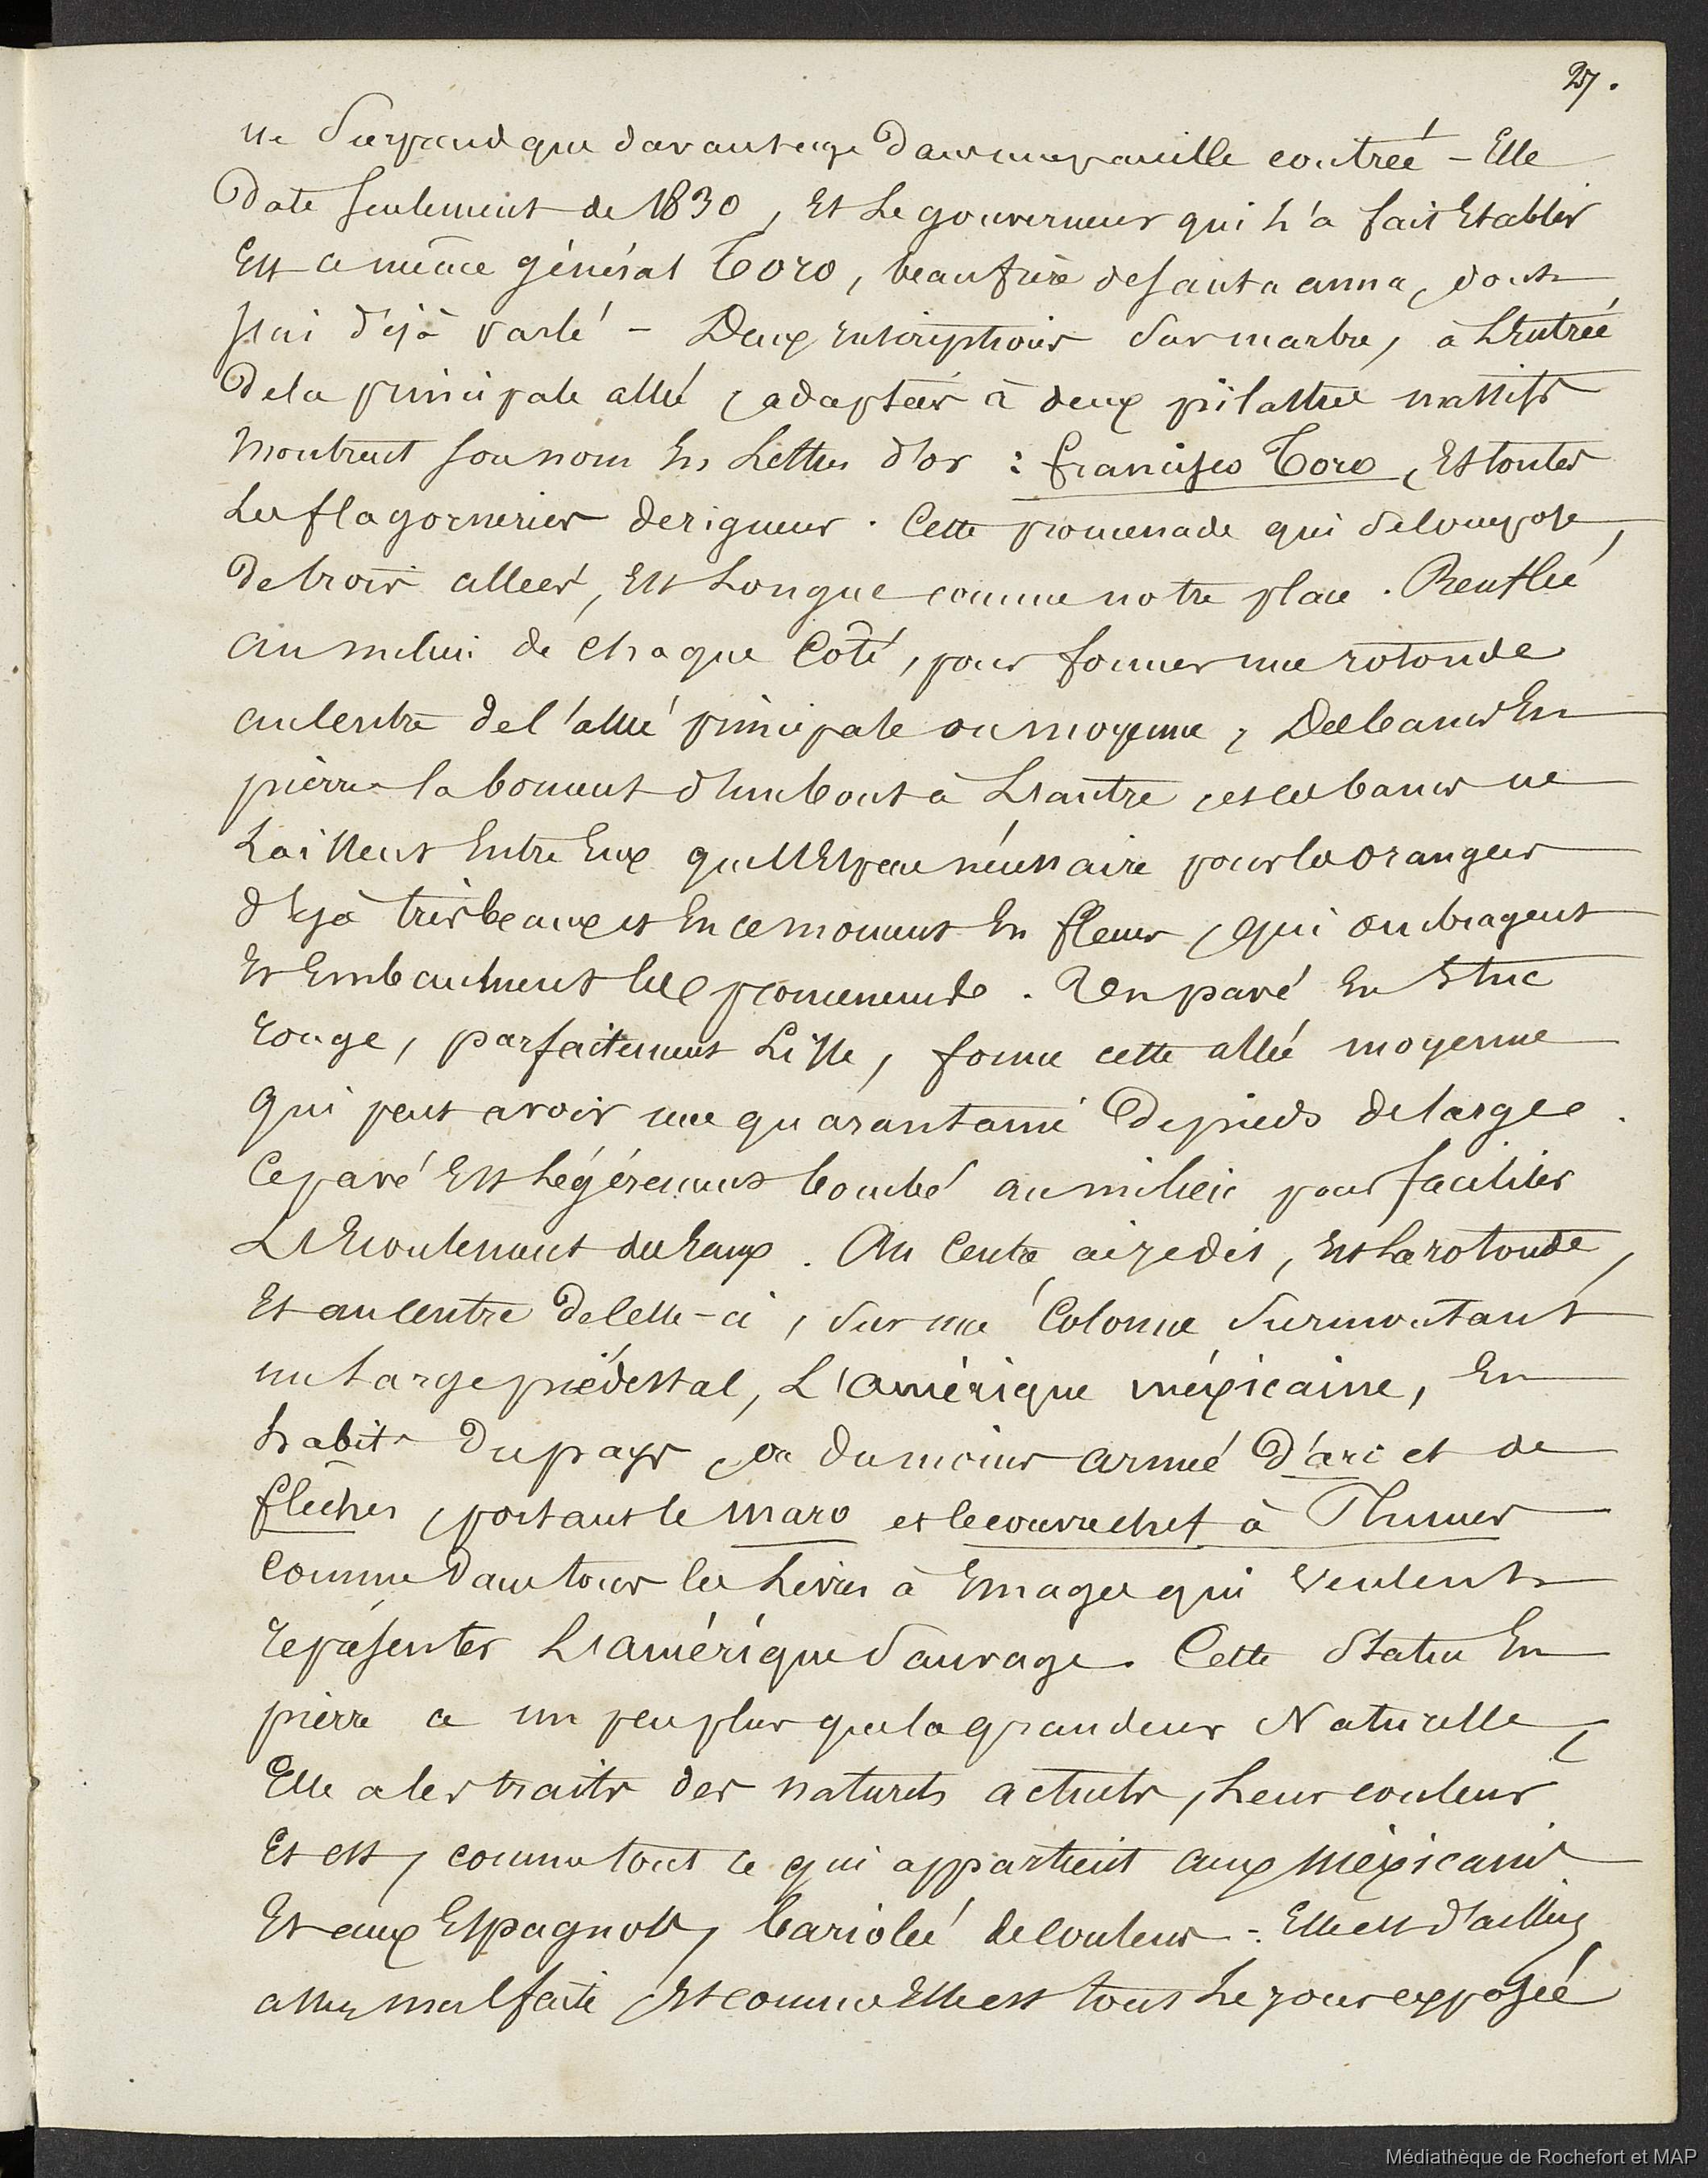 27.
ne surprend que davantage dans une pareille contrée – Elle
Date seulement de 1830, Et Le gouverneur qui L'a fait Etablir
Est ce même général Toro, beaufrère de Santa anna, dont
J'ai déjà parlé – Deux Inscriptions sur marbre, à L'Entrée
De la principale allée, adaptées à deux pilastres massifs
Montrent son nom En Lettres d'or : francisco Toro, Et toutes
Les flagorneries de rigueur. Cette promenade qui se compose,
De trois allées, Est Longue comme notre place. Renflée
au milieu de chaque Côté, pour former une rotonde
au centre de l'allée principale ou moyenne, Des bancs En
pierres la bornent d'un bout à L'autre, et ces bancs ne
Laissent Entre Eux que l'Espace nécessaire pour les orangers
déjà très beaux et En ce moment En fleurs, qui ombragent
Et Embaument la promenade. Un pavé En Stuc
rouge, parfaitement Lisse, forme cette allée moyenne
qui peut avoir une quarantaine De pieds de large.
Ce pavé Est Légèrement bombé au milieu pour faciliter
L'Ecoulement des Eaux. Au Centre, ai-je dit, Est La rotonde,
Et au centre De celle-ci, sur une Colonne surmontant
un Large piédestal, L'amérique méxicaine, En
habits Du pays, ou du moins armée D'arc et de
flèches, portant le maro et le couvrechef à Plumes
comme Dans tous les Livres à Images qui veulent
représenter L'amérique sauvage. Cette Statue En
pierre a un peu plus que la grandeur Naturelle,
Elle a les traits des naturels actuels, Leur couleur
Et est, comme tout ce qui appartient aux Méxicains
Et aux Espagnols, bariolée de couleurs : Elle est d'ailleurs
assez mal faite, Et comme Elle est tout Le jour exposée
Médiathèque de Rochefort et MAP